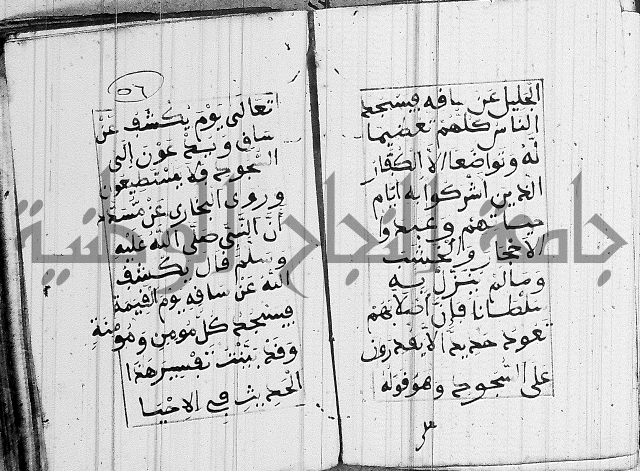 الجليل عن ساقه فيسجد
الناس كلهم تعضيما
له وتواضعا الا الكفار
الذين اشركوا به ايام
حياتهم وعبدوا
الاحجار والخشب
ومالم ينزل به
سلطانا فإن أصلابهم
تعود حديد الا يقدرون
على السجود وهو قوله
٥٦
تعالى يوم يكشف عن
ساق ويدعون إلى
السجود فلا يستطيعون
وروى البخاري عن
أن النبي صلى الله عليه
وسلم قال يكشف
الله عن ساقه يوم القيمة
فيسجد كل مومن ومومنة
وقد بينت تفسير هذا
الحديث في الاحيا
جامعة النجاح الوطنية